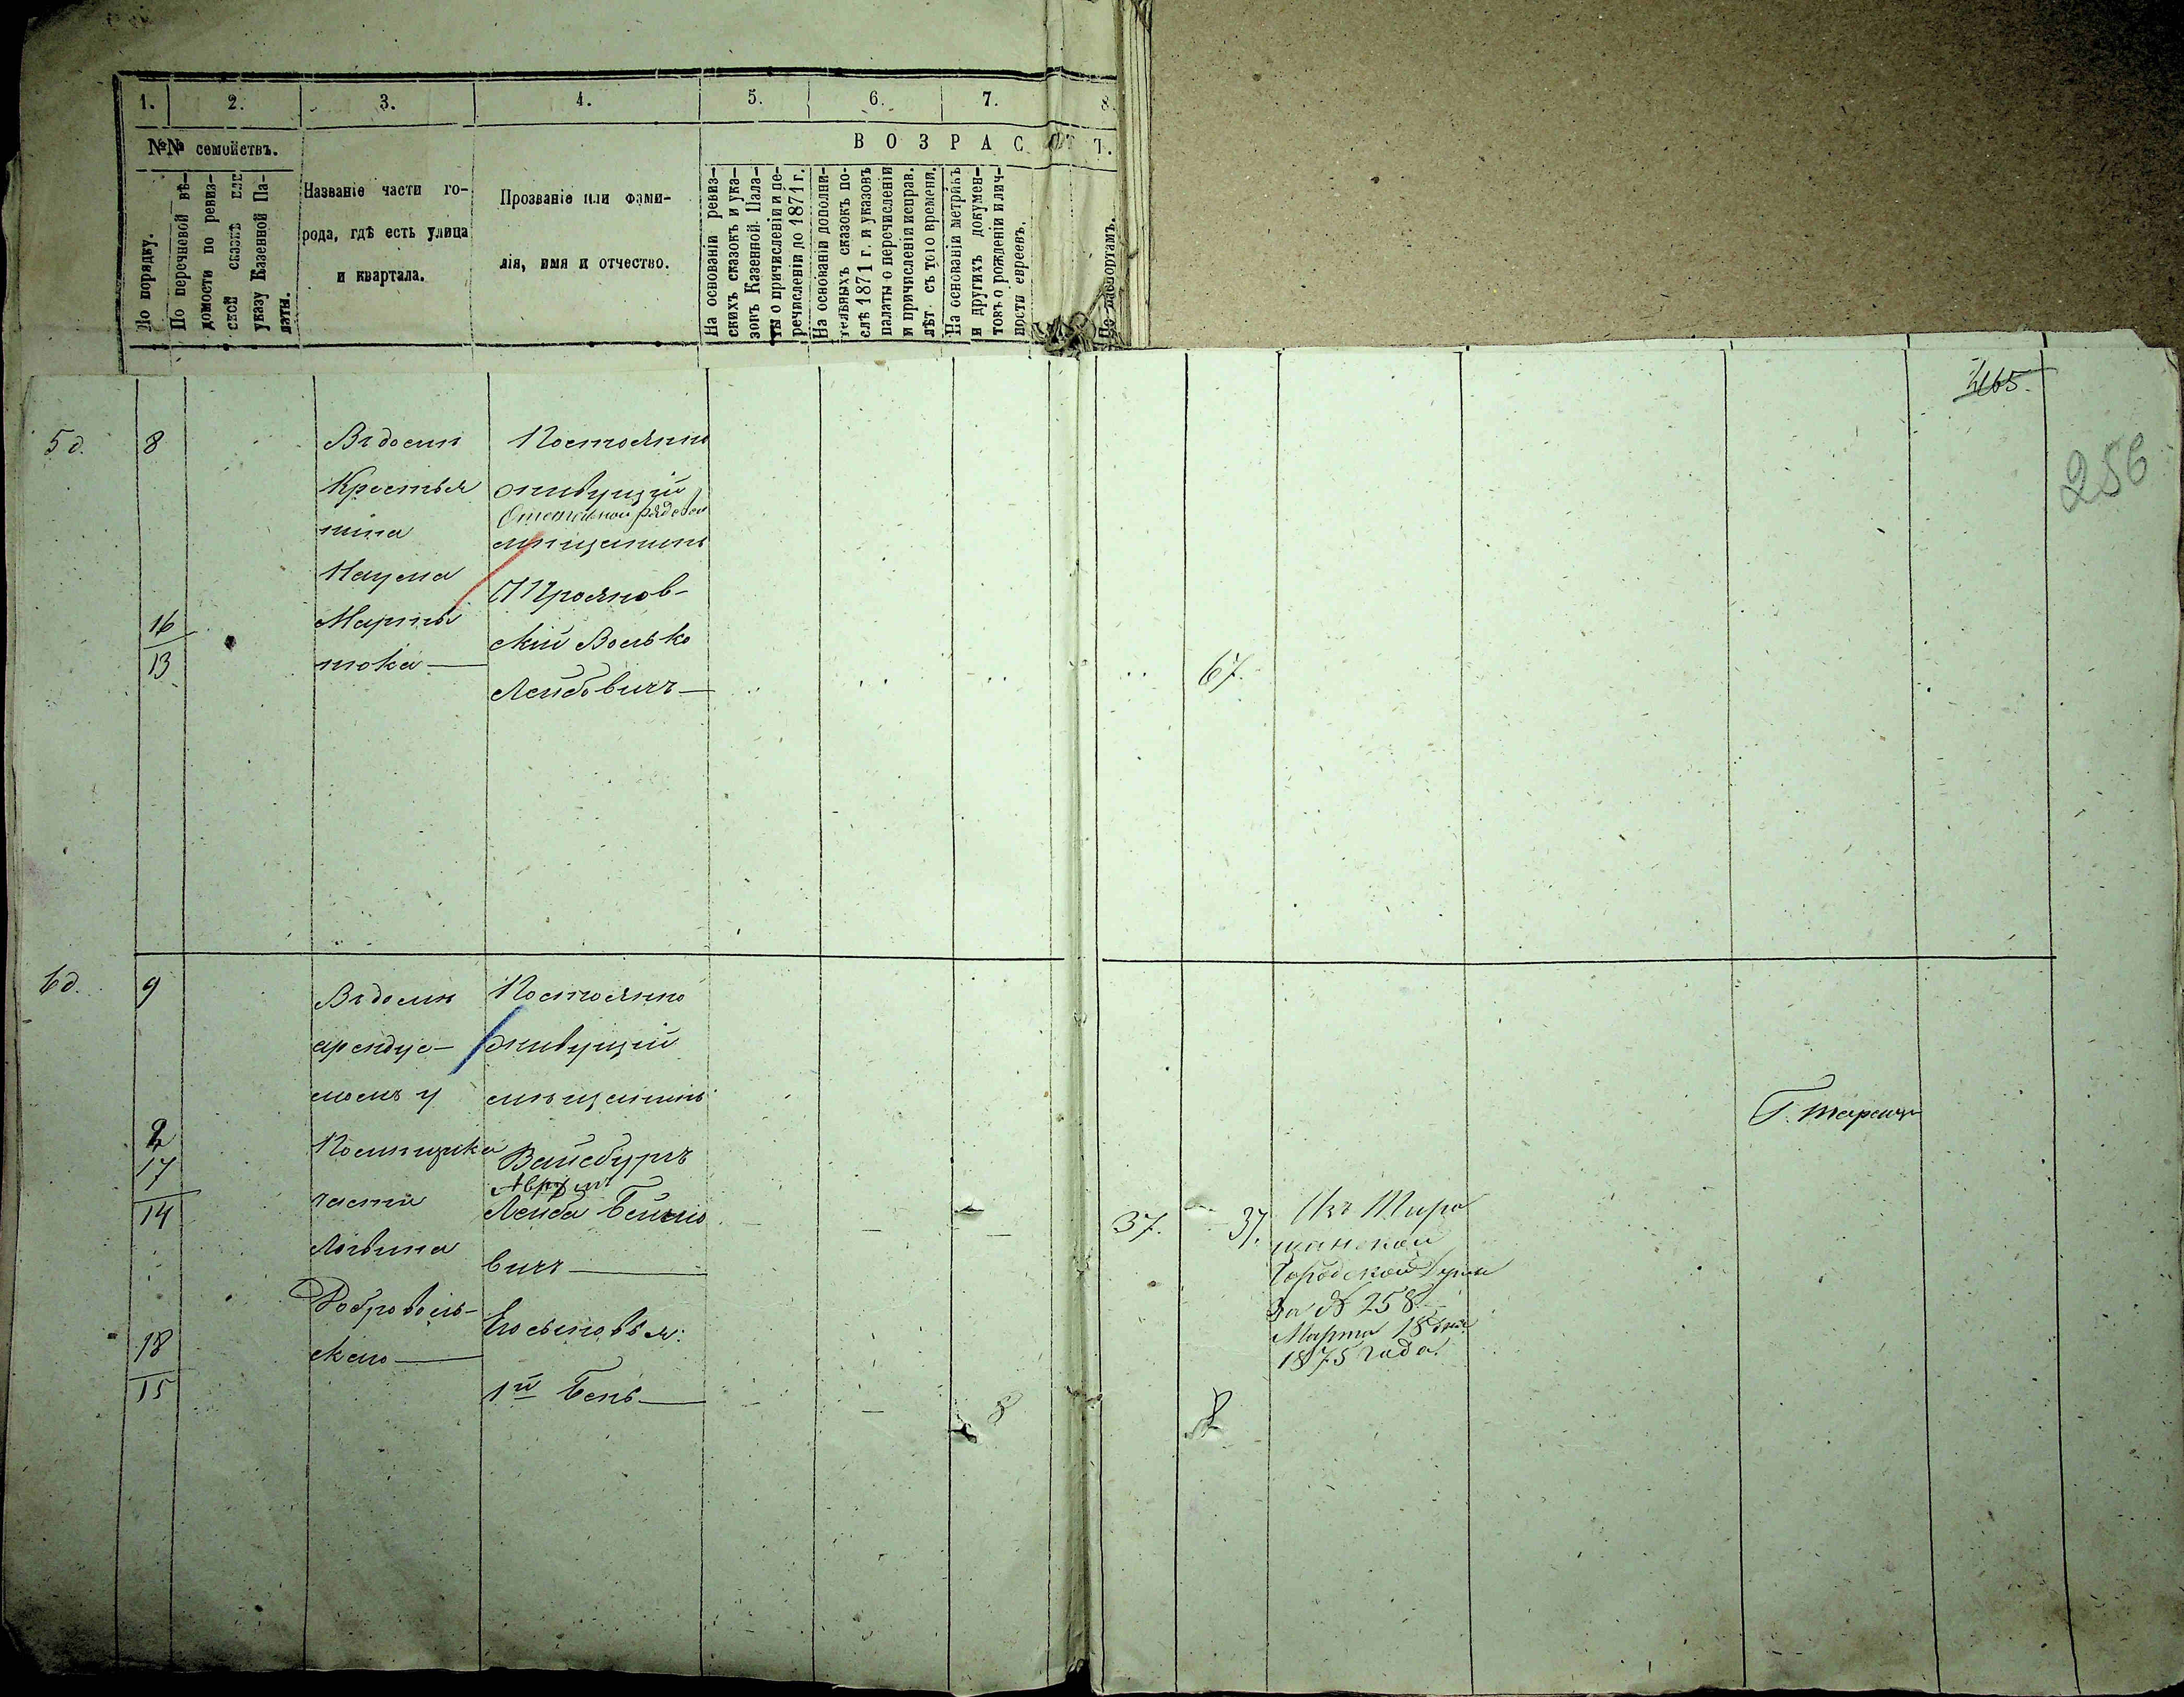 1. 2. 3. 4. 5. 6. 7. 8.
№№ семействъ.
В О З Р А С Т Ъ.
По порядку.
По перечневой вѣ-
домости по ревиз-
ской сказкѣ или
указу Казенной Па-
латы.
Названіе части го-
рода, гдѣ есть улица
и квартала.
Прозваніе или фами-
лія, имя и отчество.
На основаніи ревиз-
скихъ сказокъ и ука-
зовъ Казенной Пала-
ты о причисленіи и пе-
речисленіи до 1871 г.
На основаніи дополни-
тельныхъ сказокъ по-
слѣ 1871 г. и указовъ
палаты о перечисленіи
и причисленіи исправ.
лѣт. съ того времени.
На основаніи метрикъ
и другихъ докумен-
товъ о рожденіи и лич-
ности евреевъ.
По паспортамъ.
256
5 д.
8
16
13
Въ домѣ
Крестья
нина
Наума
Марты
нюка
Постоянно
живущій
Отставной рядовой
мѣщанинъ
Трояновъ-
скій Волько
Лейбовичъ
67.
6 д.
9
2
17
14
18
15
Въ домѣ
арендуе-
момъ у
Помѣщика
части
Логвина
Добровол-
скаго
Постоянно
живущій
мѣщанинъ
Вайсбургъ
Аврум
Лейба Бенціо
вичъ
Его сыновья:
1й Бень
8
37.
37.
8
Изъ Тара
щанской
Городской Думы
За № 258
Марта 18 дня
1875 года
Г. Тараща